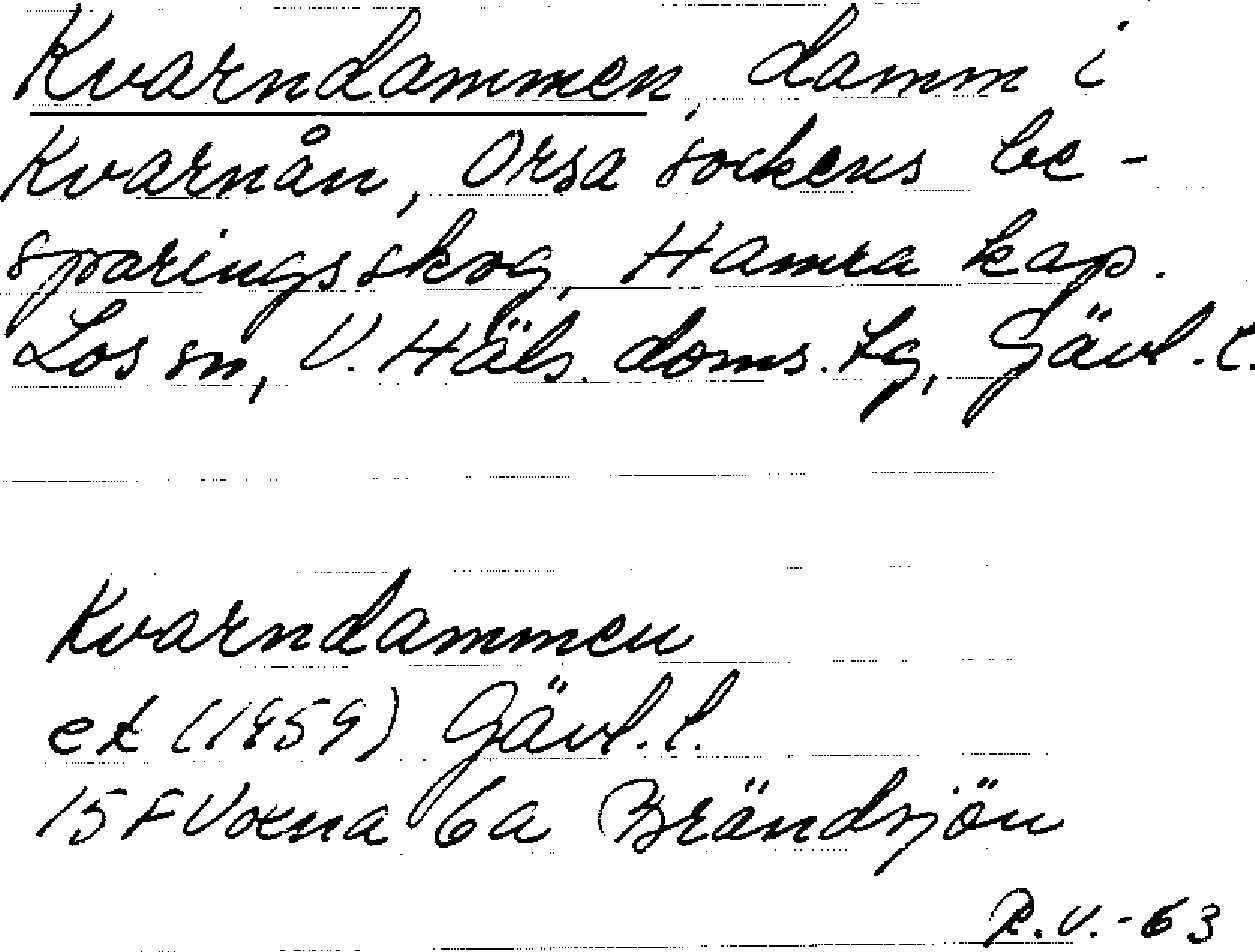 Kvarndammen, damm i
Kvarnån, Orsa sockens be-
sparingsskog, Hamra kap.
Los sn, V. Häls. doms. tg, Gävl. l.
Kvarndammen
ek (1959) Gävl. l.
15 F Voxna 6a Brändsjön
R.V.-63